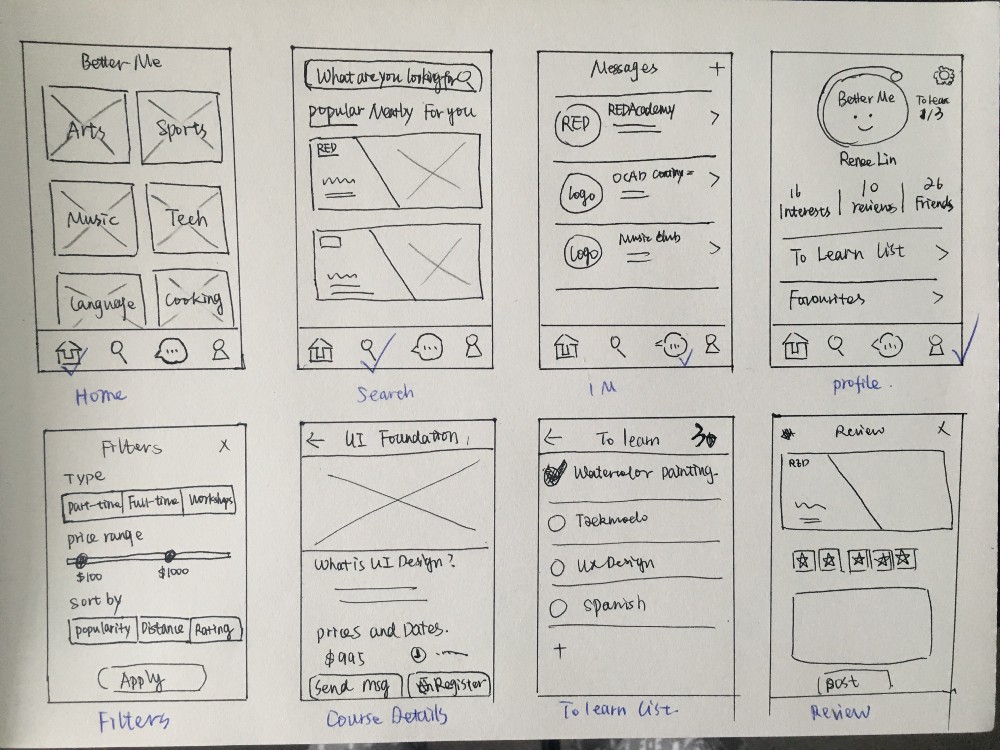 Better Me
Arts Sports
Music Tech
Language Cooking
Home
What are you looking for
popular Nearby For you
RED
Search
Messages +
RED REDAcademy
Logo OCAD
Logo Music Club
IM
Better Me
To lean
1/3
Renee Lin
16 10 26
Interests reviews Friends
To Learn List
Favourites
profile.
Filters X
Type
part-time Full-time Workshops
price range
$100 $1000
Sort by
popularity Distance Rating
Apply
Filters
UI Foundation
What is UI Design?
prices and Dates.
$995
Send msg Register
Course Details
To learn 3
Watercolor painting
Taekmodo
UX Design
Spanish
+
To learn List
Review X
RED
post
Review